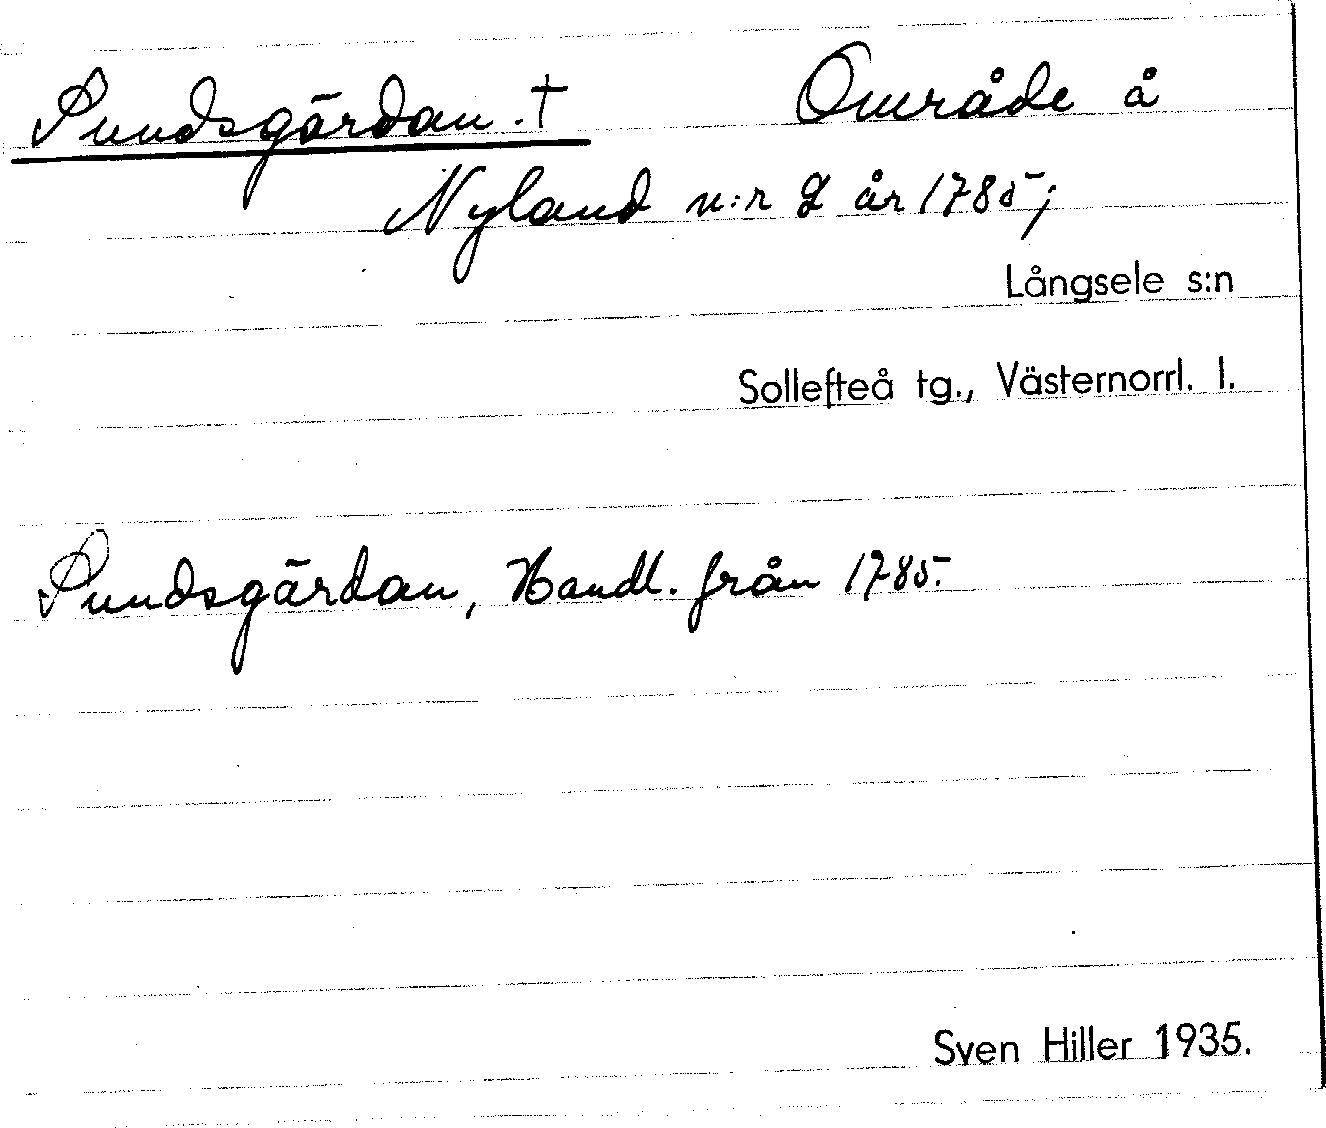 Sundsgärdan. † Område å
Nyland n:r 2 år 1785;
Långsele s:n
Sollefteå tg., Västernorrl. l.
Sundsgärdan, Handl. från 1785.
Sven Hiller 1935.